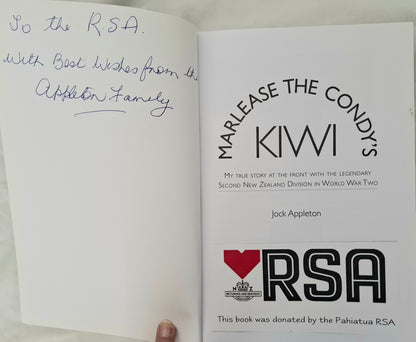 To the R.S.A.
With Best Wishes from the
Appleton Family
MARLEASE THE CONDY'S
KIWI
MY TRUE STORY AT THE FRONT WITH THE LEGENDARY
SECOND NEW ZEALAND DIVISION IN WORLD WAR TWO
Jock Appleton
RSA
N Z
This book was donated by the Pahiatua RSA